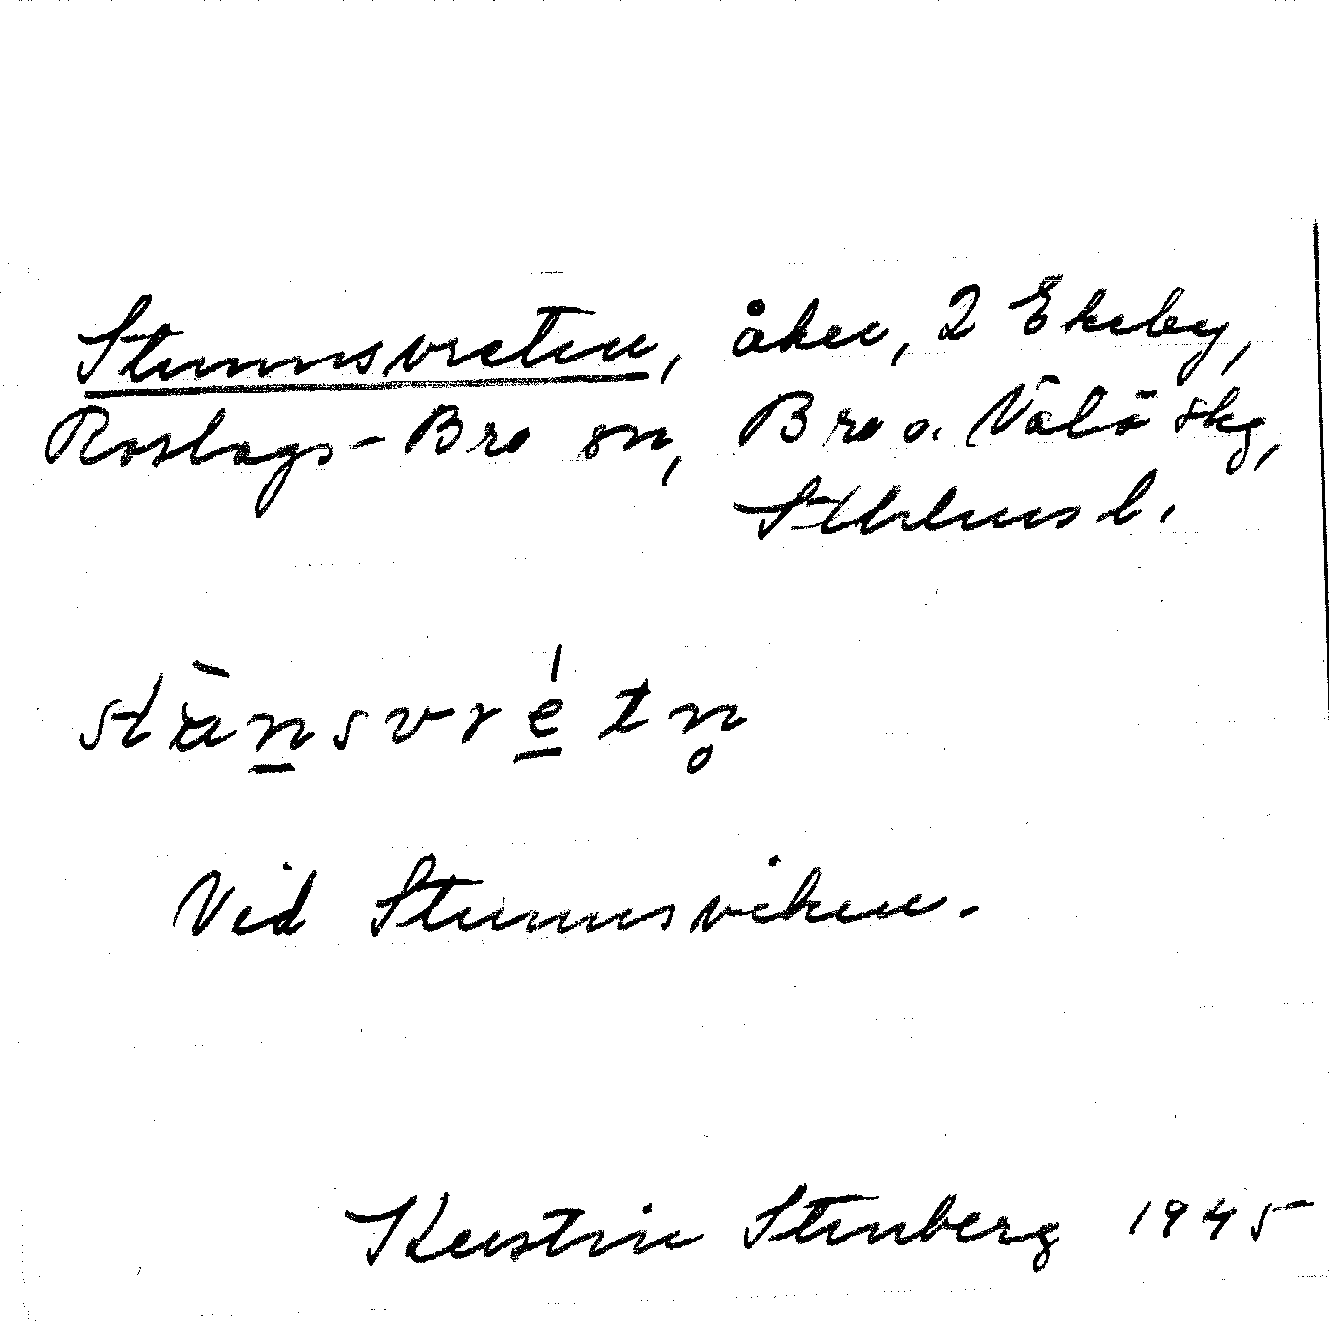 Stumsvreten, åker, 2 Ekeby,
Roslags-Bro sn, Bro o. Vätö skg,
Sthlms l.
Vid Stumsviken.
Kerstin Stenberg 1945